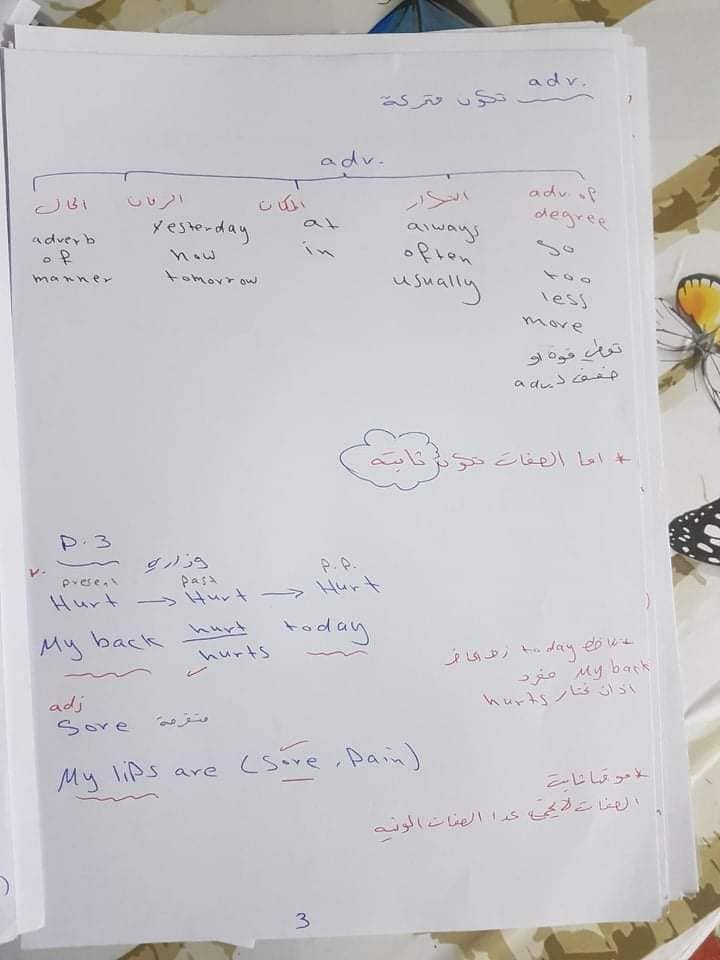 adv. تكون متحركة
adv.
الحال الزمان المكان التكرار adv. of degree
adverb of manner
yesterday
now
tomorrow
at
in
always
often
usually
so
too
less
more
تعطي قوة او
ضعف لـ adv.
* اما الصفات تكون ثابته
P.3
وزاري
present past P.P.
Hurt → Hurt → Hurt
My back hurt today
hurts
* نلاحظ today زمن حاضر
My back مفرد
اذن نختار hurts
adj
Sore متقرحة
My lips are (Sore, Pain)
* موقعها ثابت
الصفات لا تجمع عدا الصفات
3